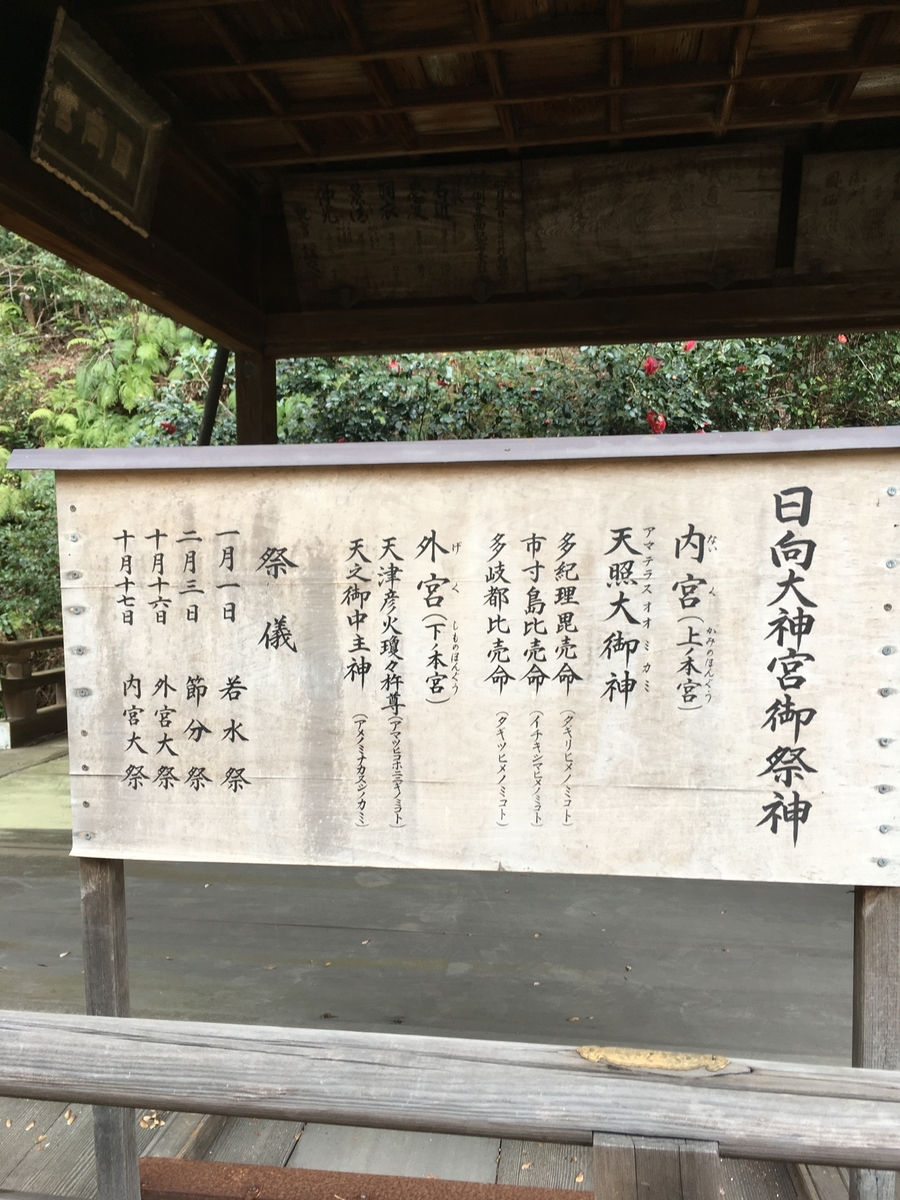 日向大神宮御祭神
内宮（上ノ本宮）
ないく かみのほんぐう
天照大御神
アマテラスオオミカミ
多紀理毘売命（タキリヒメノミコト）
市寸島比売命（イチキシマヒメノミコト）
多岐都比売命（タキツヒメノミコト）
外宮（下ノ本宮）
げく しものほんぐう
天津彦火瓊々杵尊（アマツヒコホニニギノミコト）
天之御中主神（アメノミナカヌシノカミ）
祭儀
一月一日 若水祭
二月三日 節分祭
十月十六日 外宮大祭
十月十七日 内宮大祭